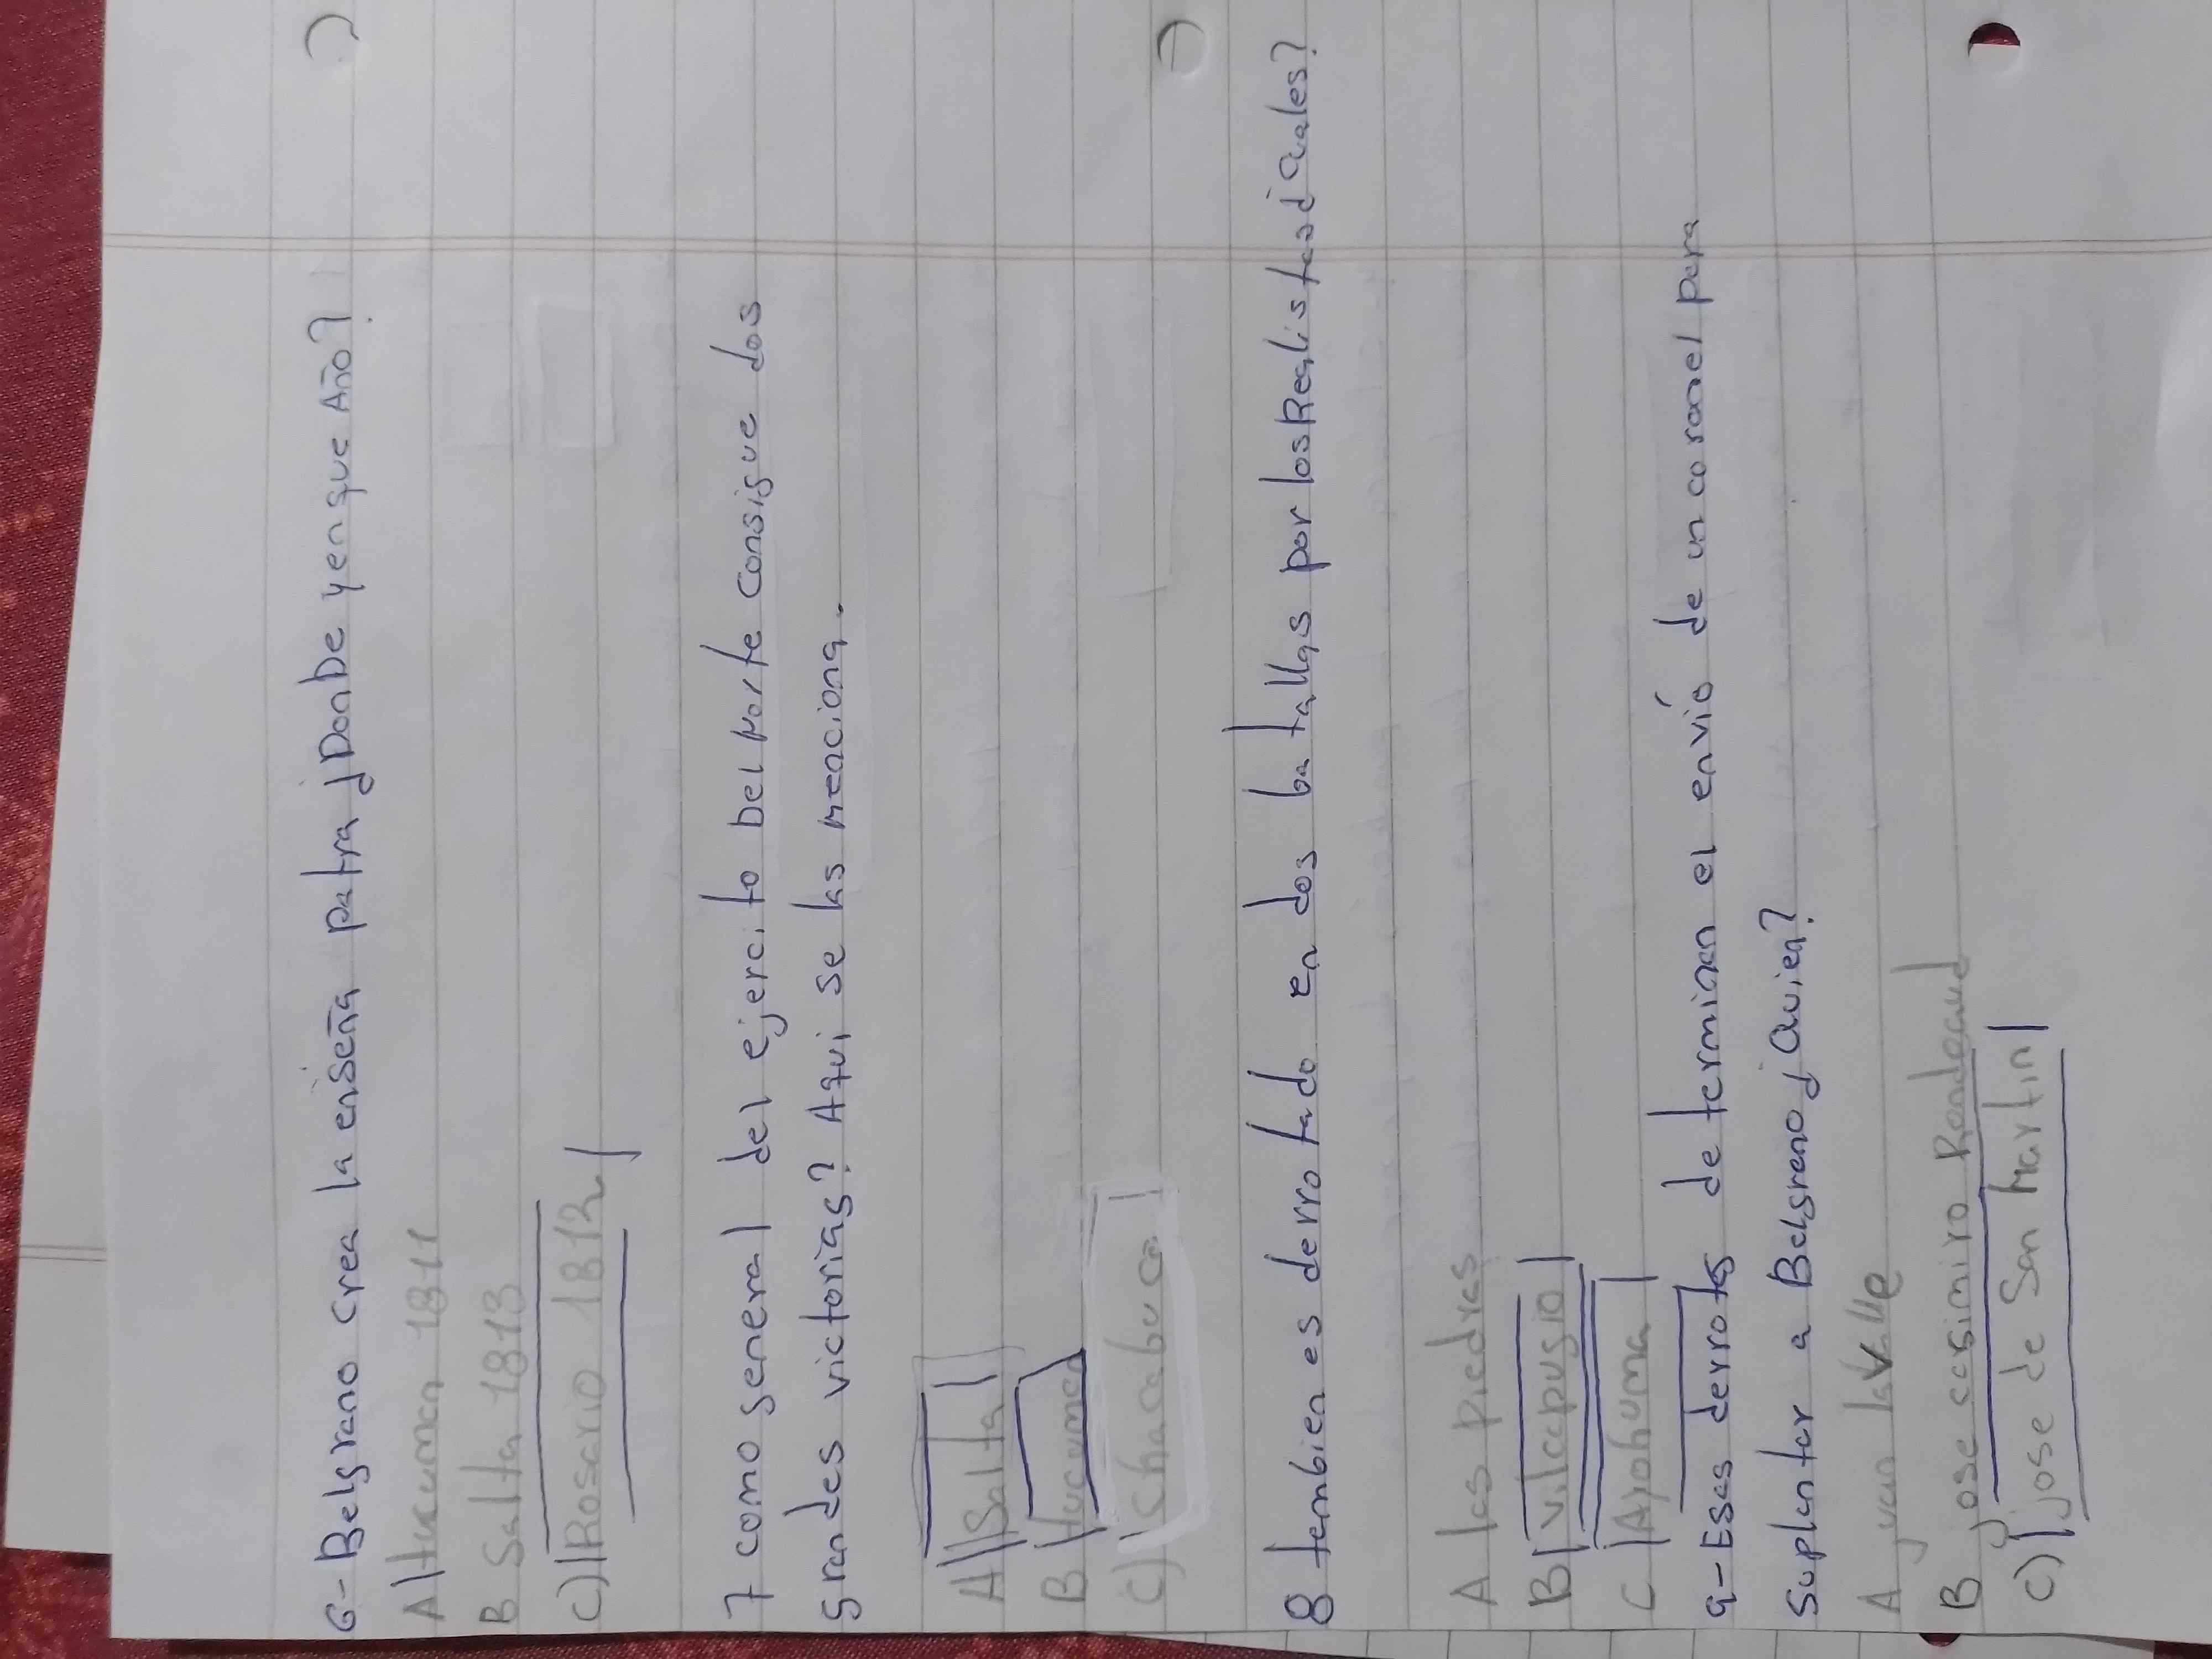 6-Belgrano crea la enseña patria ¿Donde y en que Año?
A) tucuman 1811
B Salta 1813
C) Rosario 1812
7 como general del ejercito del Norte consigue dos
grandes victorias? Aqui se las menciona.
A) Salta
B tucuman
C) Chacabuco
8 tambien es derrotado en dos batallas por los Realistas ¿Cuales?
A las piedras
B vilcapugio
C Ayohuma
9-Esas derrotas determinan el envió de un coronel para
Suplantar a Belgrano ¿Quien?
A juan lavalle
B jose casimiro Rondeaud
C) jose de San Martin